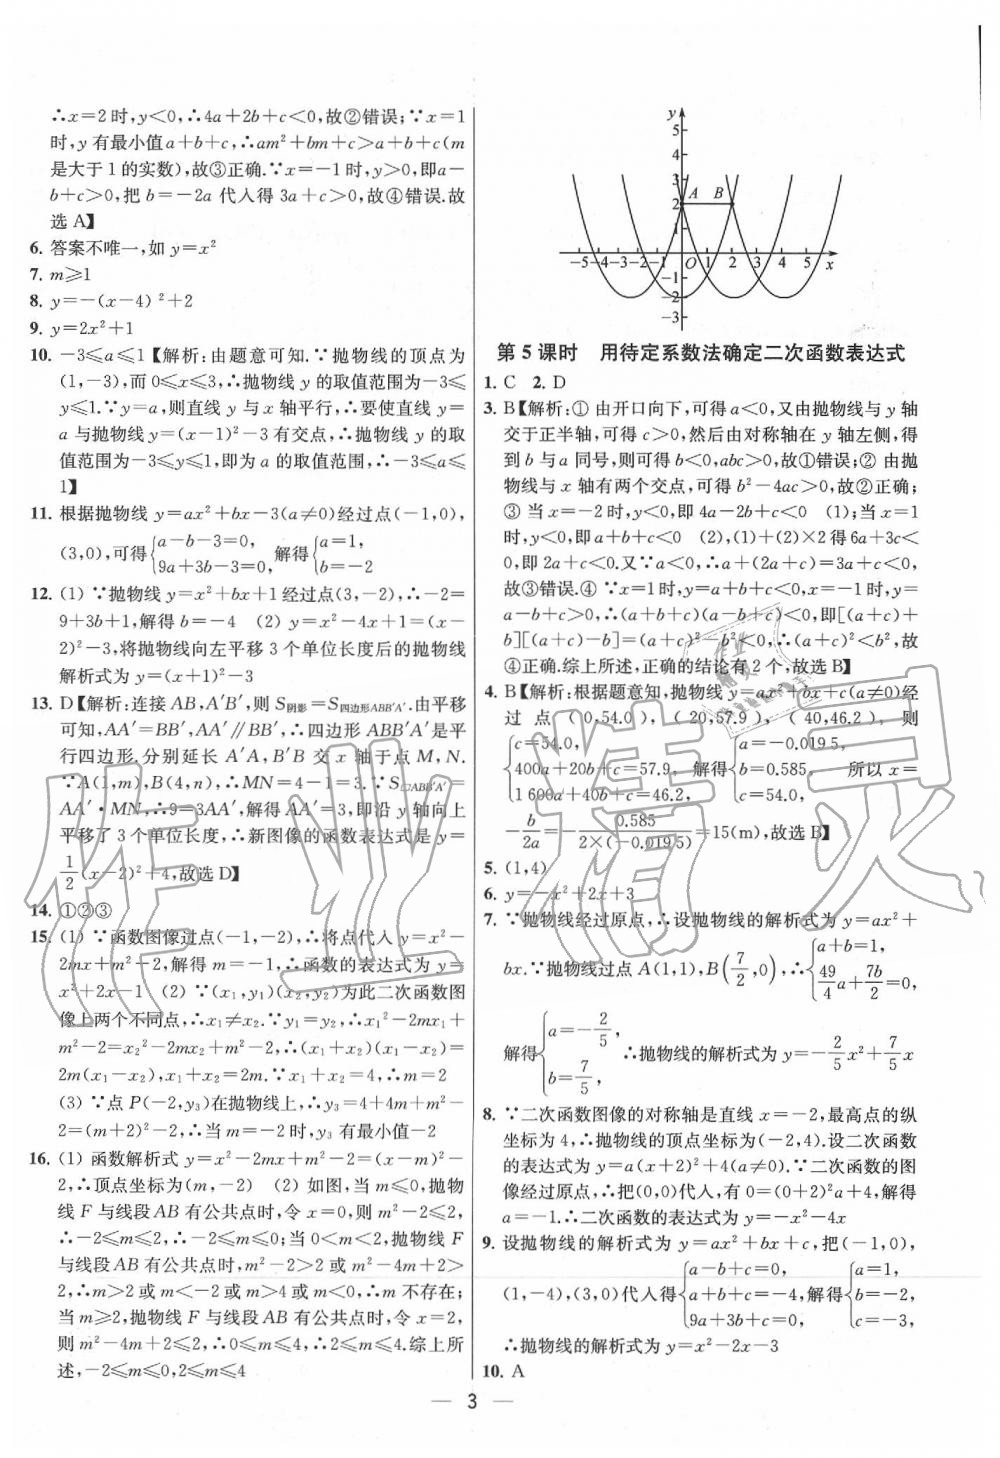 ∴x=2时,y<0,∴4a+2b+c<0,故②错误;∵x=1
时,y有最小值a+b+c,∴am²+bm+c>a+b+c(m
是大于1的实数),故③正确.∵x=-1时,y>0,即a-
b+c>0,把b=-2a代入得3a+c>0,故④错误.故
选A】
6. 答案不唯一,如y=x²
7. m≥1
8. y=-(x-4)²+2
9. y=2x²+1
10. -3≤a≤1【解析:由题意可知.∵抛物线的顶点为
(1,-3),而0≤x≤3,∴抛物线y的取值范围为-3≤
y≤1.∵y=a,则直线y与x轴平行,∴要使直线y=
a与抛物线y=(x-1)²-3有交点,∴抛物线y的取
值范围为-3≤y≤1,即为a的取值范围,∴-3≤a≤
1】
11. 根据抛物线y=ax²+bx-3(a≠0)经过点(-1,0),
(3,0),可得{a-b-3=0, 9a+3b-3=0, 解得{a=1, b=-2
12. (1) ∵抛物线y=x²+bx+1经过点(3,-2),∴-2=
9+3b+1,解得b=-4 (2) y=x²-4x+1=(x-
2)²-3,将抛物线向左平移3个单位长度后的抛物线
解析式为y=(x+1)²-3
13. D【解析:连接AB,A′B′,则S阴影=S四边形ABB′A′.由平移
可知,AA′=BB′,AA′∥BB′,∴四边形ABB′A′是平
行四边形.分别延长A′A,B′B交x轴于点M,N.
∵A(1,m),B(4,n),∴MN=4-1=3.∵S□ABB′A′=
AA′·MN,∴9=3AA′,解得AA′=3,即沿y轴向上
平移了3个单位长度,∴新图像的函数表达式是y=
1/2(x-2)²+4,故选D】
14. ①②③
15. (1) ∵函数图像过点(-1,-2),∴将点代入y=x²-
2mx+m²-2,解得m=-1,∴函数的表达式为y=
x²+2x-1 (2) ∵(x₁,y₁)(x₂,y₂)为此二次函数图
像上两个不同点,∴x₁≠x₂.∵y₁=y₂,∴x₁²-2mx₁+
m²-2=x₂²-2mx₂+m²-2,∴(x₁+x₂)(x₁-x₂)=
2m(x₁-x₂),x₁+x₂=2m.∵x₁+x₂=4,∴m=2
(3) ∵点P(-2,y₃)在抛物线上,∴y₃=4+4m+m²-
2=(m+2)²-2,∴当m=-2时,y₃有最小值-2
16. (1) 函数解析式y=x²-2mx+m²-2=(x-m)²-
2,∴顶点坐标为(m,-2) (2) 如图,当m≤0,抛物
线F与线段AB有公共点时,令x=0,则m²-2≤2,
∴-2≤m≤2,∴-2≤m≤0;当0<m<2,抛物线F
与线段AB有公共点时,m²-2>2或m²-4m+2>
2,∴m>2或m<-2或m>4或m<0,∴m不存在;
当m≥2,抛物线F与线段AB有公共点时,令x=2,
则m²-4m+2≤2,∴0≤m≤4,∴2≤m≤4.综上所
述,-2≤m≤0,2≤m≤4
y
5
4
3
2 A B
1
-5-4-3-2-1 O 1 2 3 4 5 x
-1
-2
-3
第5课时 用待定系数法确定二次函数表达式
1. C 2. D
3. B【解析:① 由开口向下,可得a<0,又由抛物线与y轴
交于正半轴,可得c>0,然后由对称轴在y轴左侧,得
到b与a同号,则可得b<0,abc>0,故①错误;② 由抛
物线与x轴有两个交点,可得b²-4ac>0,故②正确;
③ 当x=-2时,y<0,即4a-2b+c<0 (1);当x=1
时,y<0,即a+b+c<0 (2),(1)+(2)×2得6a+3c<
0,即2a+c<0.又∵a<0,∴a+(2a+c)=3a+c<0,
故③错误.④ ∵x=1时,y=a+b+c<0,x=-1时,y=
a-b+c>0,∴(a+b+c)(a-b+c)<0,即[(a+c)+
b][(a+c)-b]=(a+c)²-b²<0,∴(a+c)²<b²,故
④正确.综上所述,正确的结论有2个,故选B】
4. B【解析:根据题意知,抛物线y=ax²+bx+c(a≠0)经
过点(0,54.0),(20,57.9),(40,46.2),则
{c=54.0, 400a+20b+c=57.9, 1600a+40b+c=46.2, 解得{a=-0.0195, b=0.585, c=54.0, 所以x=
-b/2a=-0.585/(2×(-0.0195))=15(m),故选B】
5. (1,4)
6. y=-x²+2x+3
7. ∵抛物线经过原点,∴设抛物线的解析式为y=ax²+
bx.∵抛物线过点A(1,1),B(7/2,0),∴{a+b=1, 49/4a+7b/2=0,
解得{a=-2/5, b=7/5, ∴抛物线的解析式为y=-2/5x²+7/5x
8. ∵二次函数图像的对称轴是直线x=-2,最高点的纵
坐标为4,∴抛物线的顶点坐标为(-2,4).设二次函数
的表达式为y=a(x+2)²+4(a≠0).∵二次函数的图
像经过原点,∴把(0,0)代人,有0=(0+2)²a+4,解得
a=-1.∴二次函数的表达式为y=-x²-4x
9. 设抛物线的解析式为y=ax²+bx+c,把(-1,0),
(1,-4),(3,0)代人得{a-b+c=0, a+b+c=-4, 9a+3b+c=0, 解得{a=1, b=-2, c=-3,
∴抛物线的解析式为y=x²-2x-3
10. A
— 3 —
作业精灵